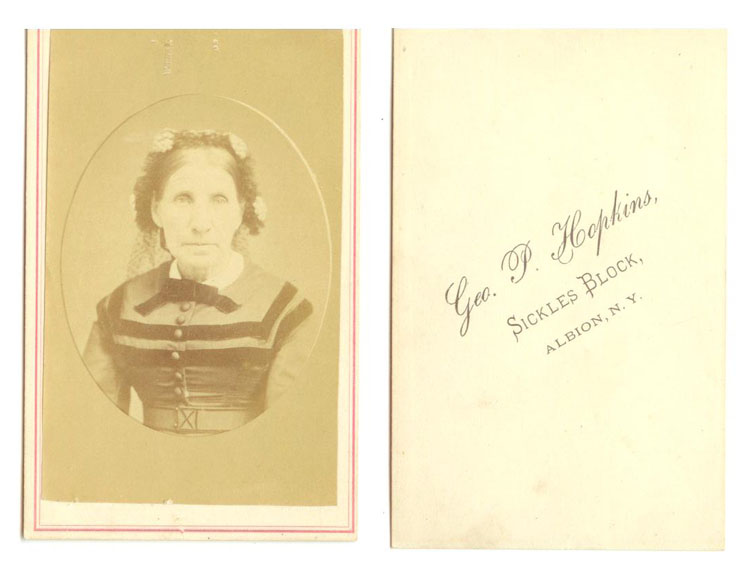 Geo. P. Hopkins,
SICKLES BLOCK,
ALBION, N.Y.